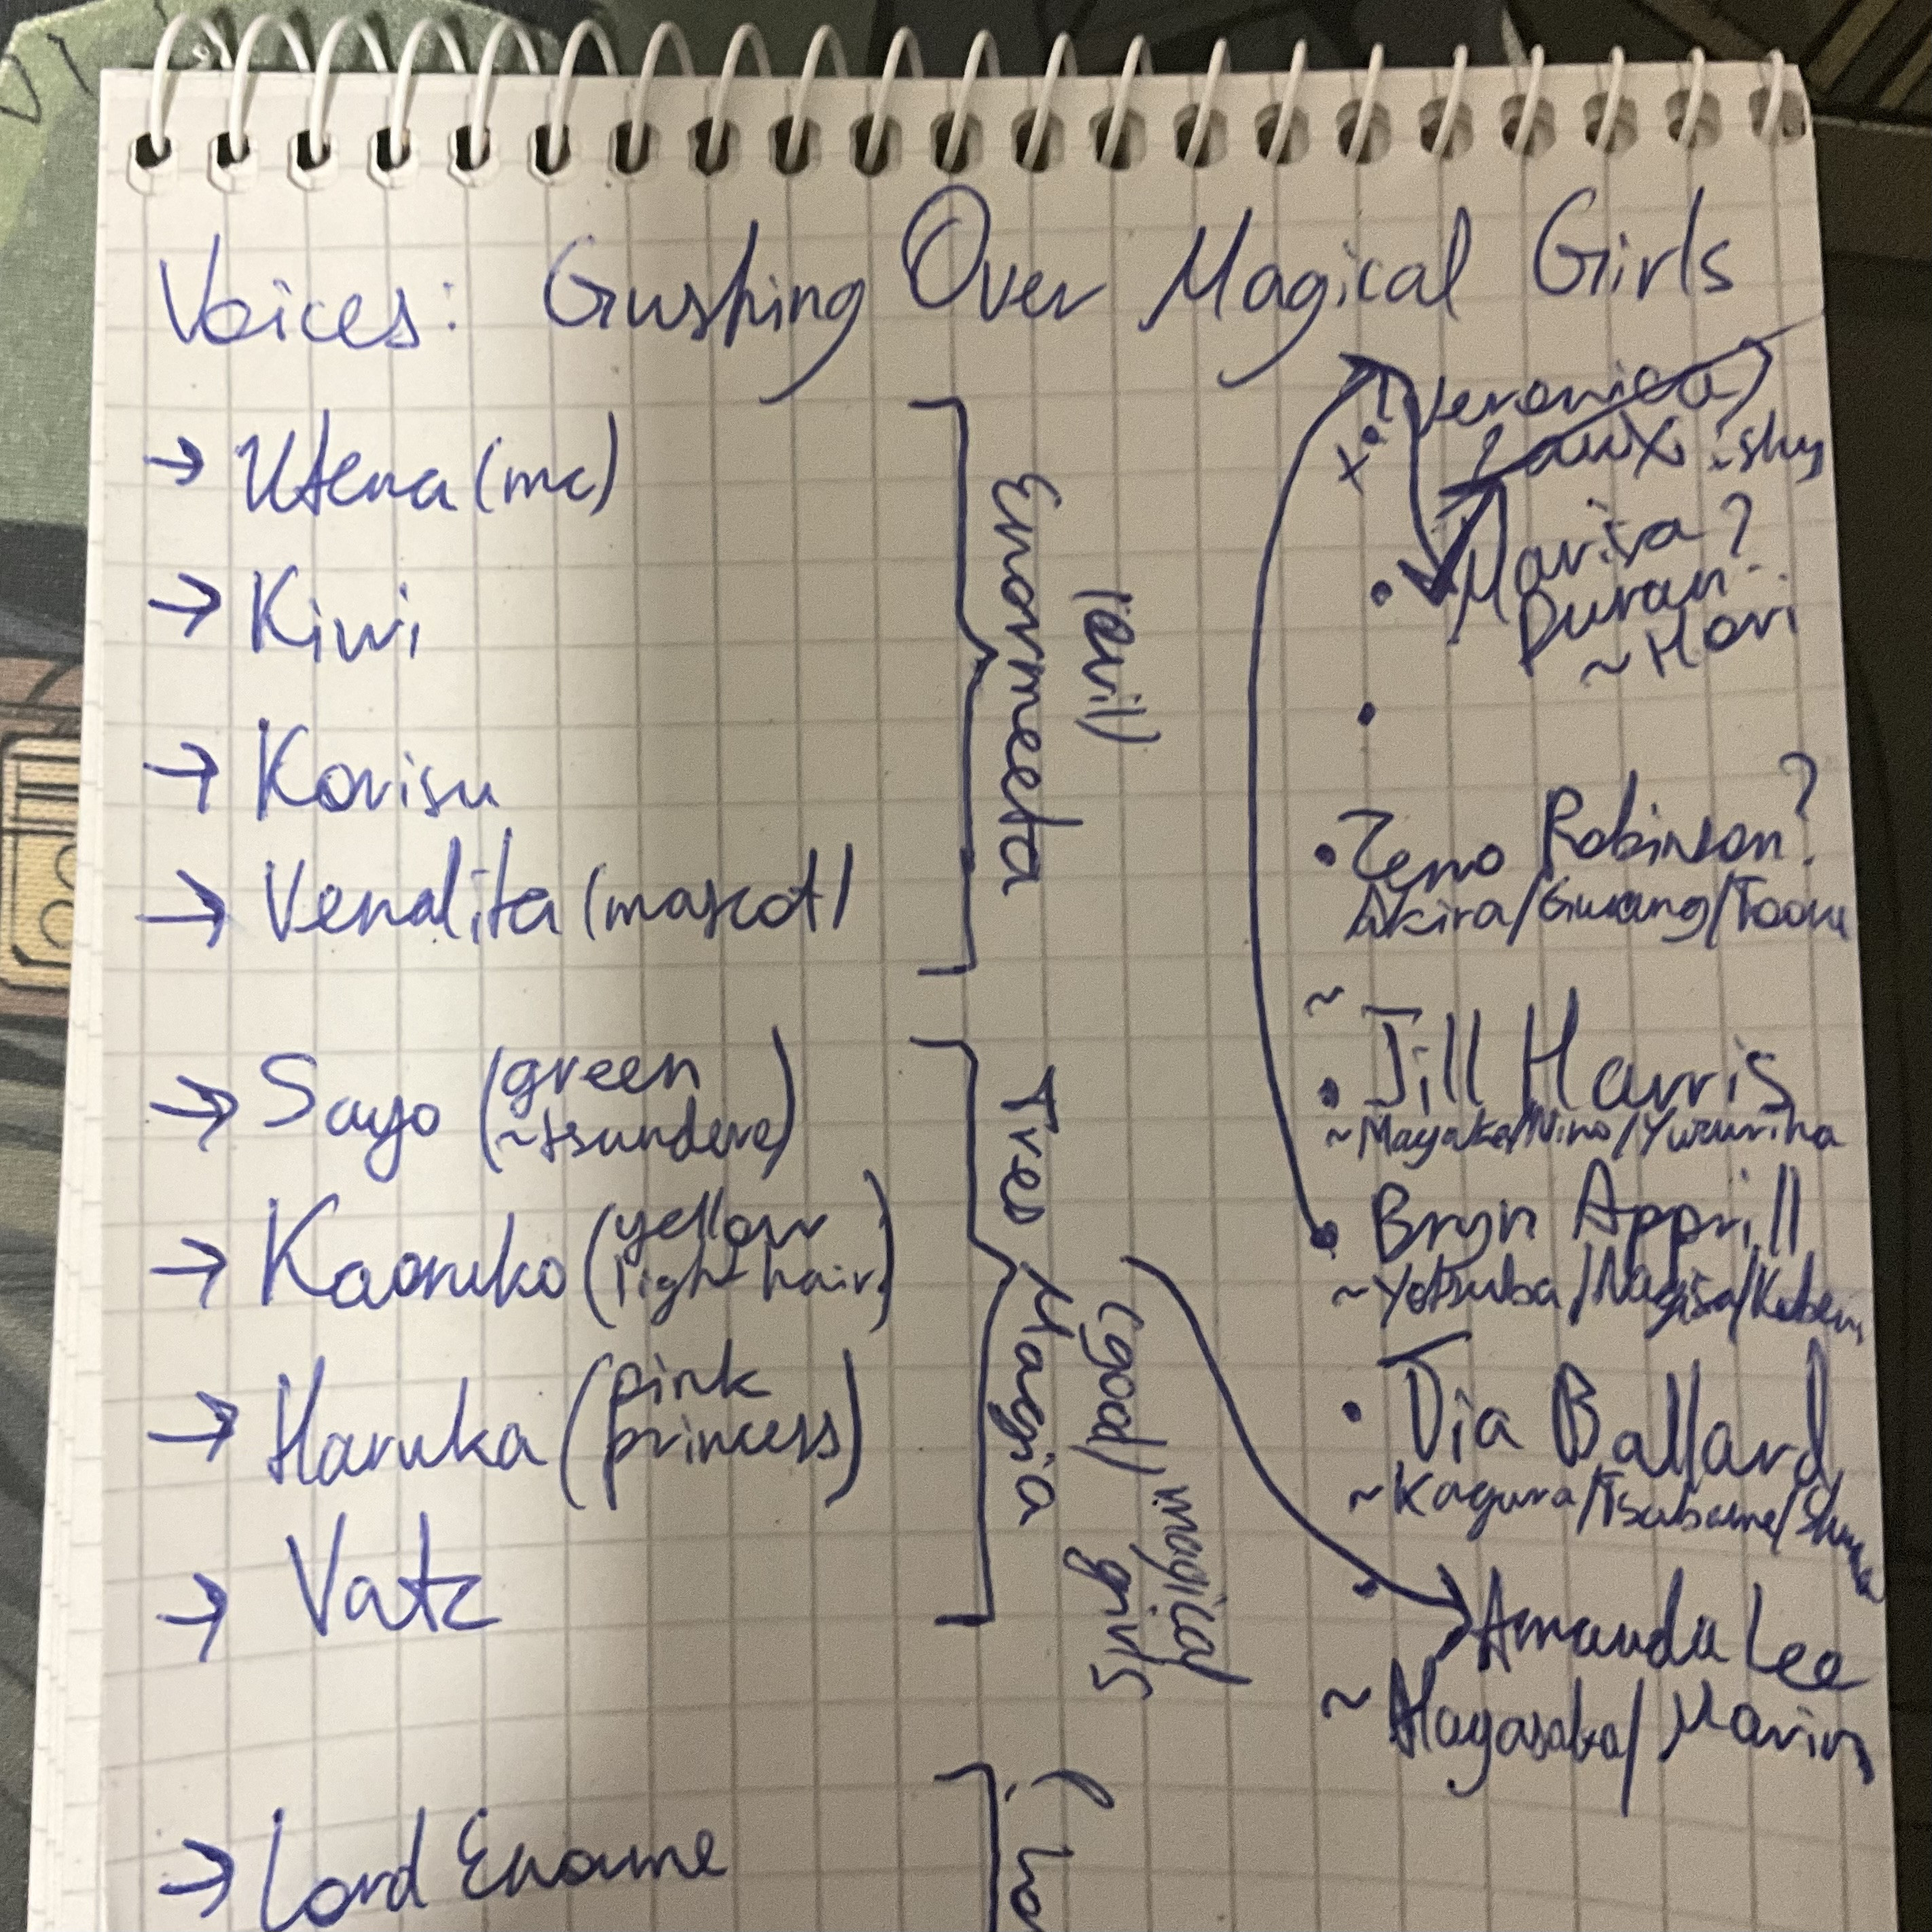 Voices: Gushing Over Magical Girls
→ Utena (mc)
→ Kiwi
→ Korisu
→ Venalita (mascot)
Enormeeta
(evil)
→ Sayo (green
~tsundere)
→ Kaoruko (yellow
light hair)
→ Haruka (pink
princess)
→ Vatz
Tres Magia
(good)
magical
girls
→ Lord Enorme
Veronica
Laux? :shy
Marisa?
Duran
~Hori
Zeno Robinson?
Akira/Gwang/Tooru
~
Jill Harris
~Mayaka/Nino/Yuzuriha
Bryn Apprill
~Yotsuba/Nagisa/Kobeni
Tia Ballard
~Kagura/Tsubame/
Amanda Lee
~Hayasaka/Marin